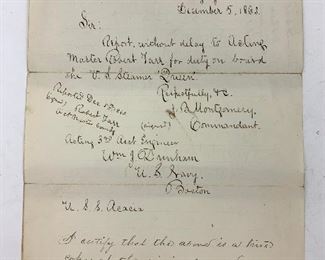 December 5, 1862
Sir:
Report, without delay to Acting
Master Robert Tarr for duty on board
the U. S. Steamer Queen
Respectfully, &c.
J. B. Montgomery,
Commandant.
Reported Dec
(signed) Robert Tarr
(signed)
Acting 3rd Asst Engineer
Wm J
U. S. Navy.
Boston
U. S. S. Acacia
I certify that this above is a true